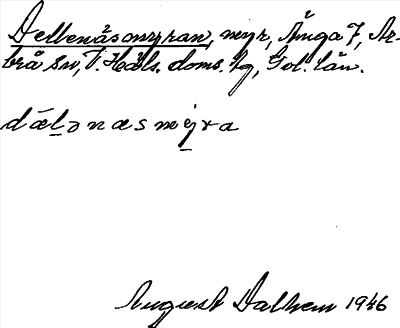 Dellenåsmyran, myr, Ånga 7, Ar-
brå sn, V. Häls. doms. hg, Gvl. län.
dæl̲ɔnæsmy̲ra
August Dalhem 1946